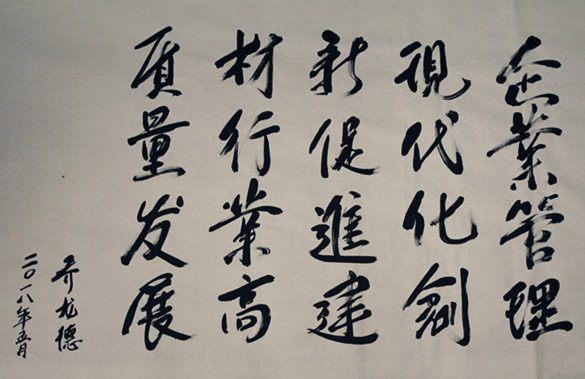 企業管理
現代化創
新促進建
材行業高
质量发展
乔龙德
二〇一八年五月